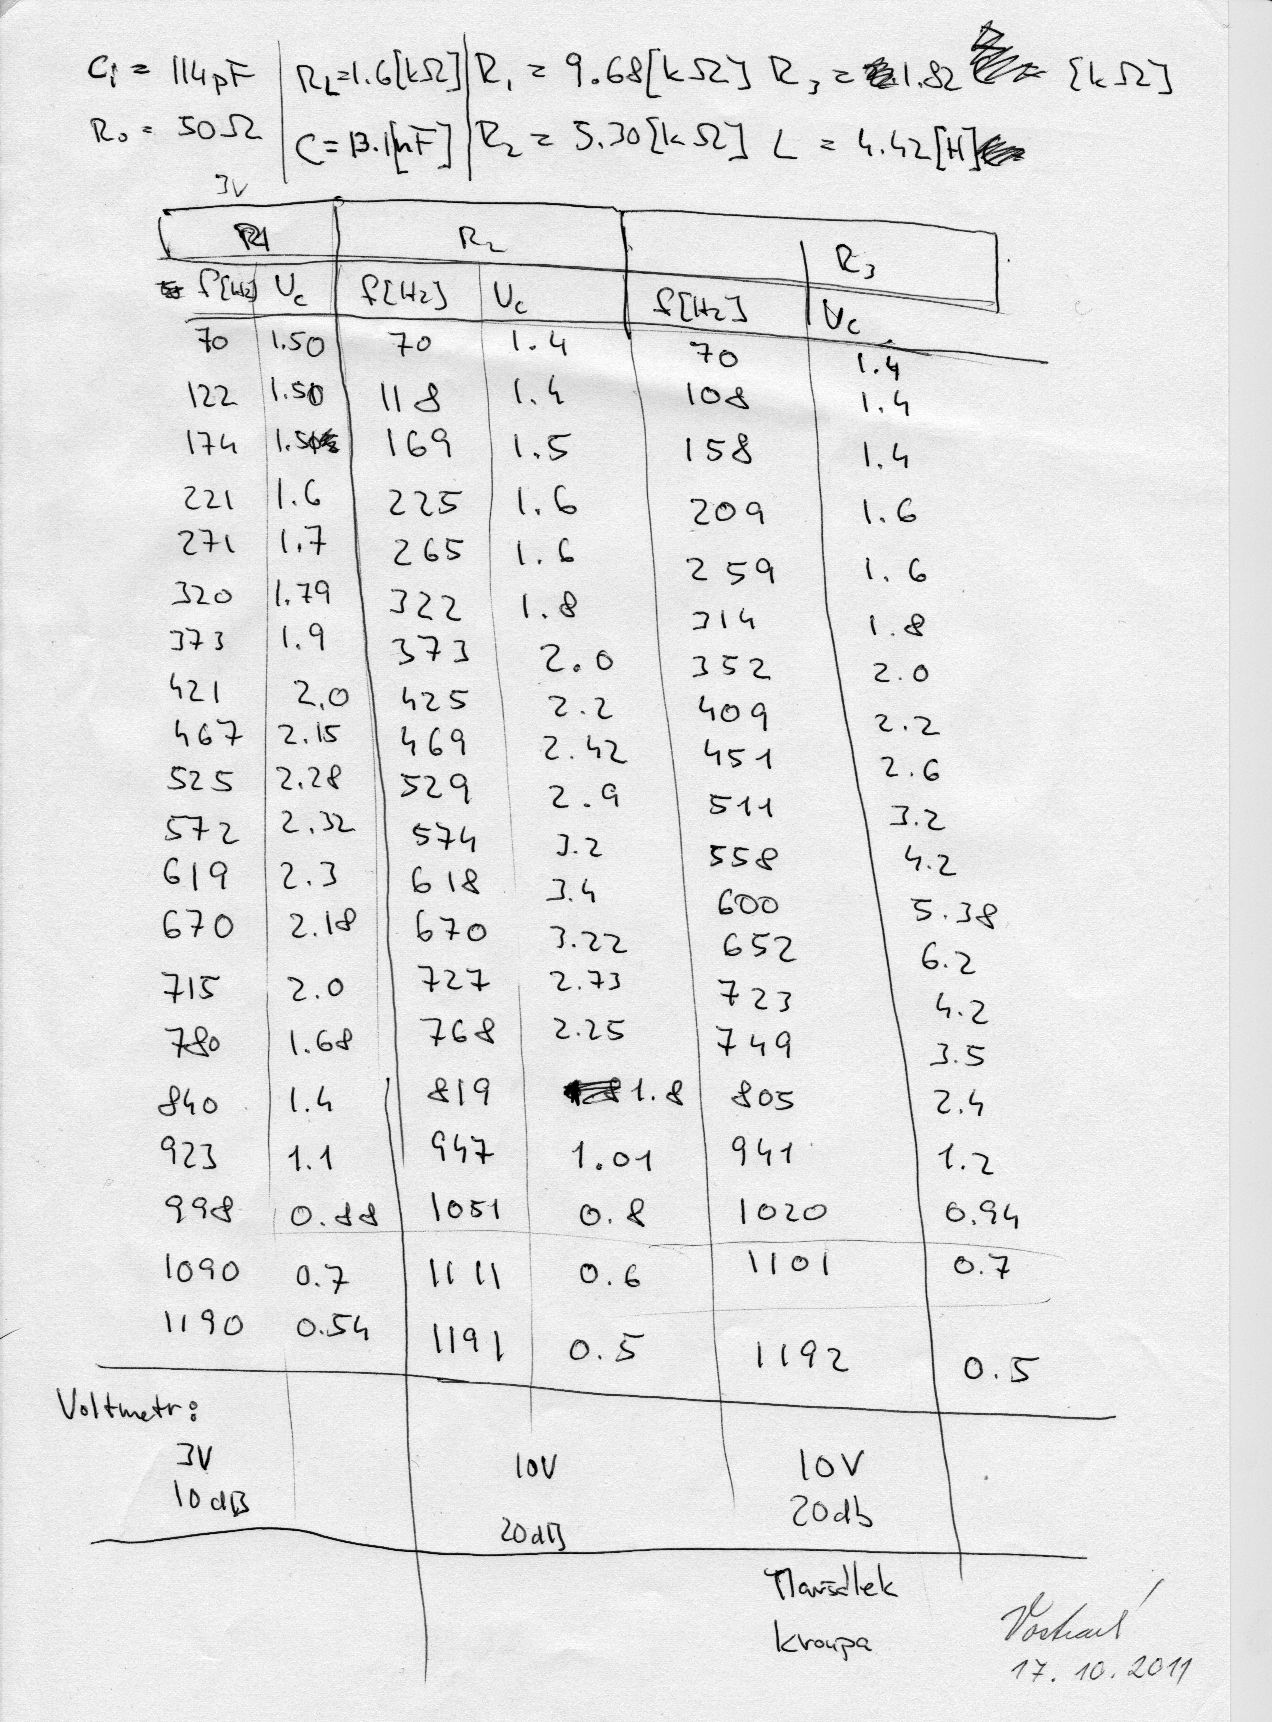 C₁ = 114pF | R_L=1.6[kΩ] | R₁ = 9.68[kΩ] R₃ = 1.82 [kΩ]
R₀ = 50Ω | C=13.1[nF] | R₂ = 5.30[kΩ] L = 4.42[H]
3V
R1 R₂ R₃
f[Hz] U_c f[Hz] U_c f[Hz] U_c
70 1.50 70 1.4 70 1.4
122 1.50 118 1.4 108 1.4
174 1.50 169 1.5 158 1.4
221 1.6 225 1.6 209 1.6
271 1.7 265 1.6 259 1.6
320 1.79 322 1.8 314 1.8
373 1.9 373 2.0 352 2.0
421 2.0 425 2.2 409 2.2
467 2.15 469 2.42 451 2.6
525 2.28 529 2.9 511 3.2
572 2.32 574 3.2 558 4.2
619 2.3 618 3.4 600 5.38
670 2.18 670 3.22 652 6.2
715 2.0 727 2.73 723 4.2
780 1.68 768 2.25 749 3.5
840 1.4 819 1.8 805 2.4
923 1.1 947 1.01 941 1.2
998 0.88 1051 0.8 1020 0.94
1090 0.7 1111 0.6 1101 0.7
1190 0.54 1191 0.5 1192 0.5
Voltmetr:
3V 10V 10V
10dB 20dB 20db
Maršálek
Kroupa
17. 10. 2011